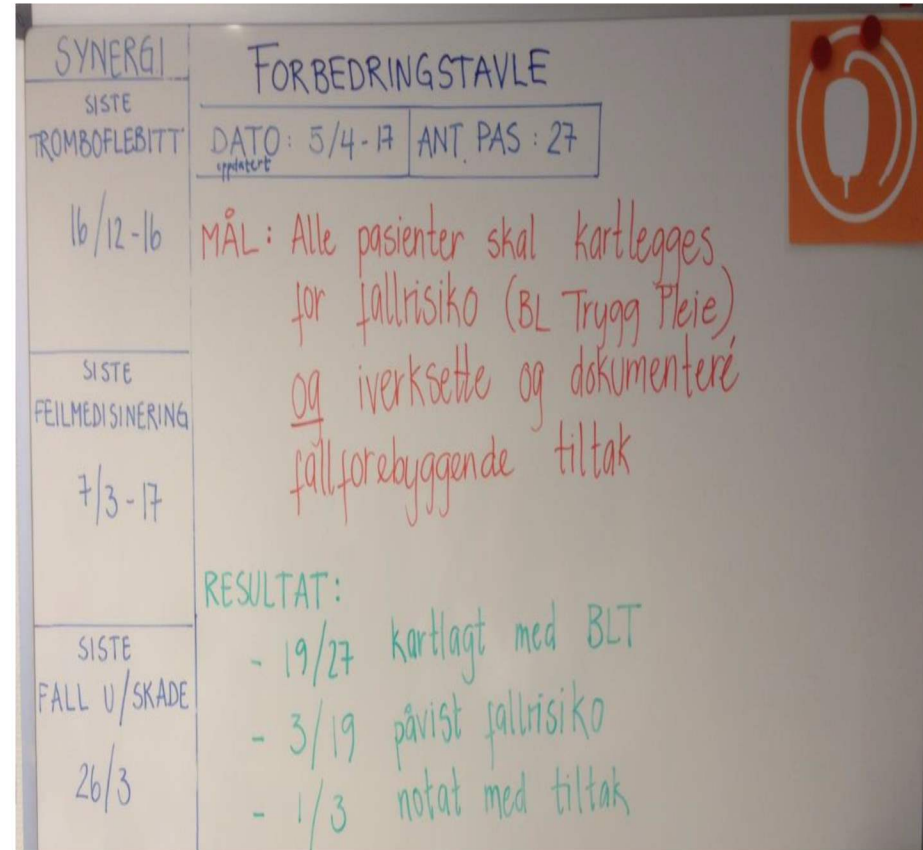 SYNERGI
SISTE
TROMBOFLEBITT
16/12-16
SISTE
FEILMEDISINERING
7/3-17
SISTE
FALL U/SKADE
26/3
FORBEDRINGSTAVLE
DATO: 5/4-17
oppdatert
ANT. PAS: 27
MÅL: Alle pasienter skal kartlegges
for fallrisiko (BL Trygg Pleie)
og iverksette og dokumentere
fallforebyggende tiltak
RESULTAT:
- 19/27 kartlagt med BLT
- 3/19 påvist fallrisiko
- 1/3 notat med tiltak